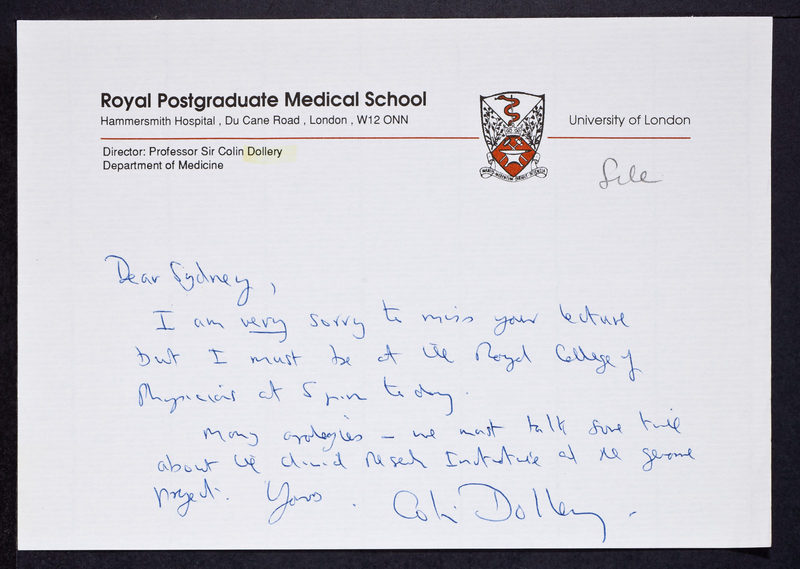 Royal Postgraduate Medical School
Hammersmith Hospital , Du Cane Road , London , W12 ONN
University of London
Director: Professor Sir Colin Dollery
Department of Medicine
file
Dear Sydney,
I am very sorry to miss your lecture
but I must be at the Royal College of
Physicians at 5 pm today.
Many apologies – we must talk some time
about the clinical research Institute at the genome
project. Yours . Colin Dollery .